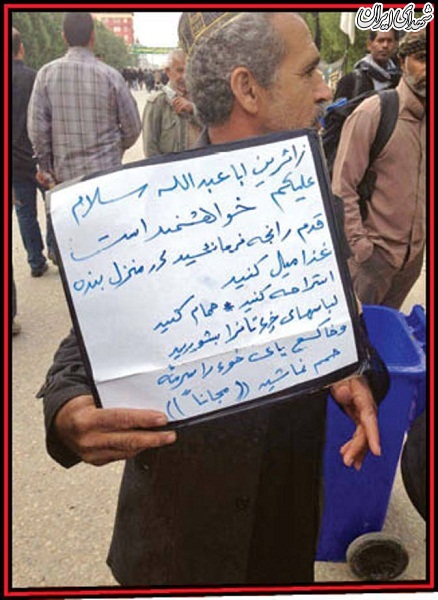 شهدای ایران
زائرین اباعبدالله سلام
علیکم خواهشمند است
قدم رانجه فرمائید منزل بنده
غذا میل کنید
استراحه کنید * حمام کنید
لباسهای خودتانرا بشورید
پای خود را سرمه
نمائید ((مجانا"))